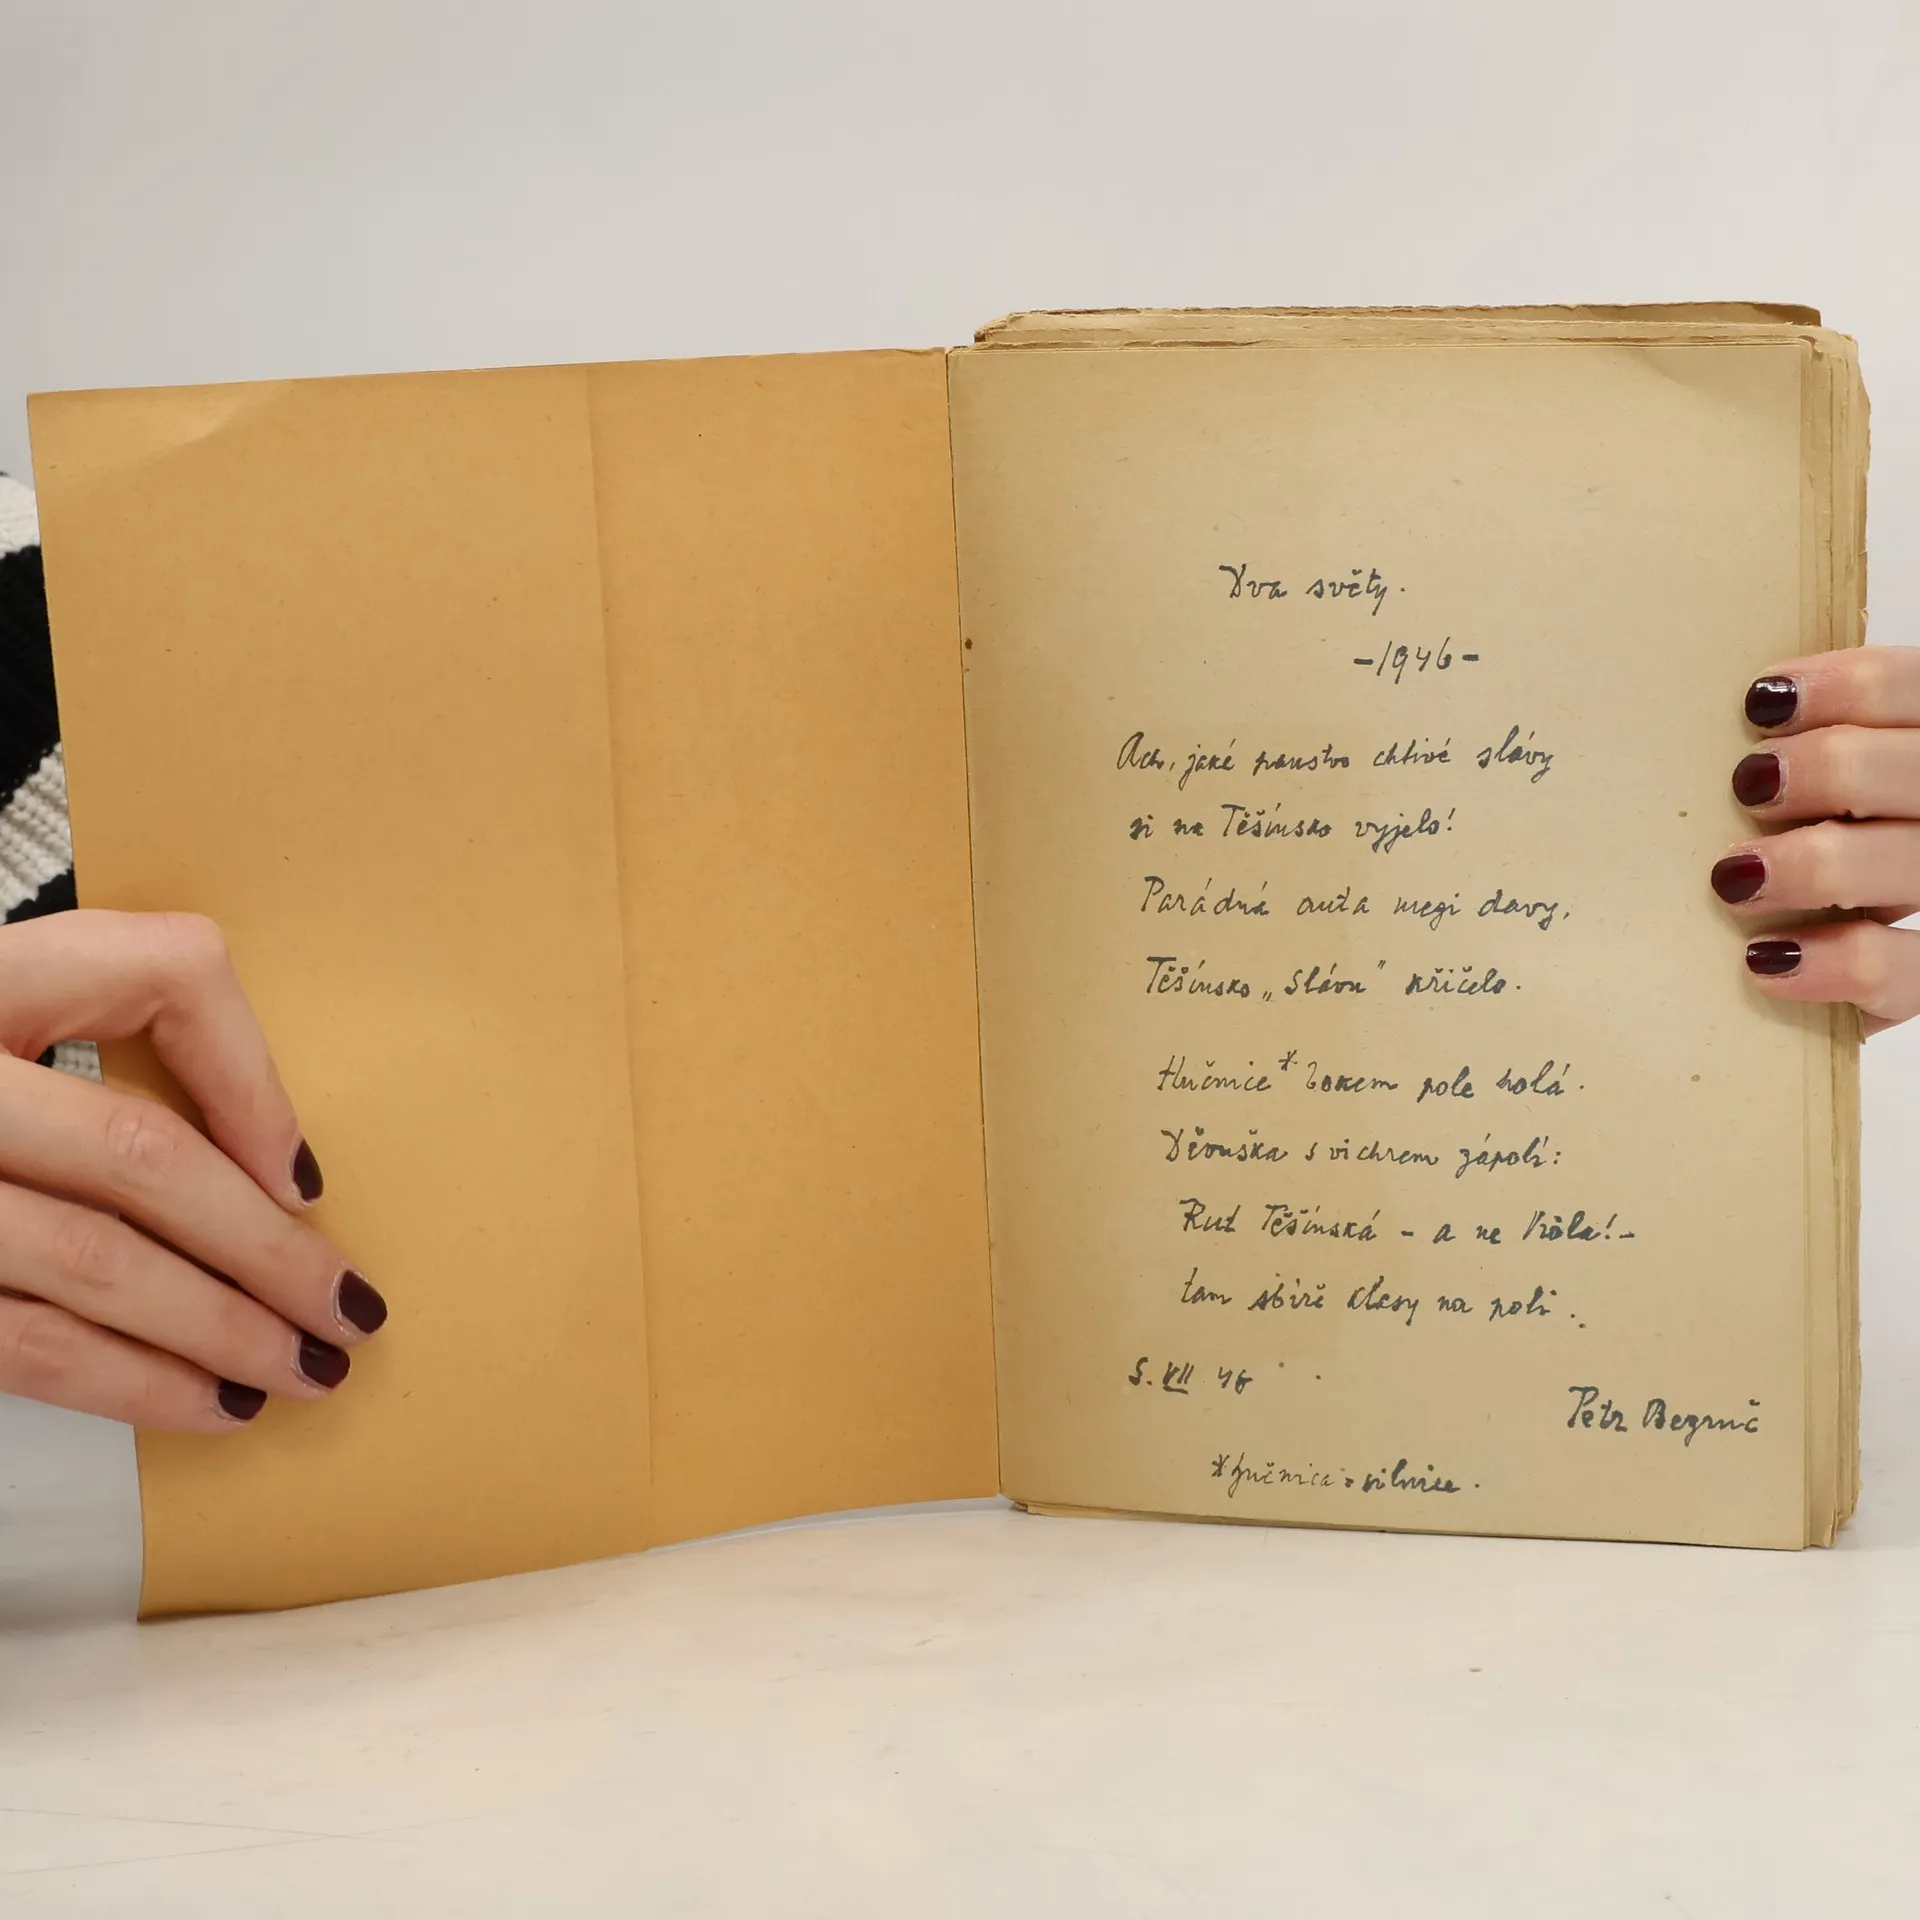 Dva světy.
-1946-
Ach, jaké panstvo chtivé slávy
si na Těšínsko vyjelo!
Parádná auta mezi davy,
Těšínsko „Slávu" křičelo.
Hučnice * bokem pole holá.
Děvuška s vichrem zápolí:
Rut Těšínská - a ne Vióla! -
tam sbírá klasy na poli.
5. VII 46
Petr Bezruč
* hučnica = silnice.